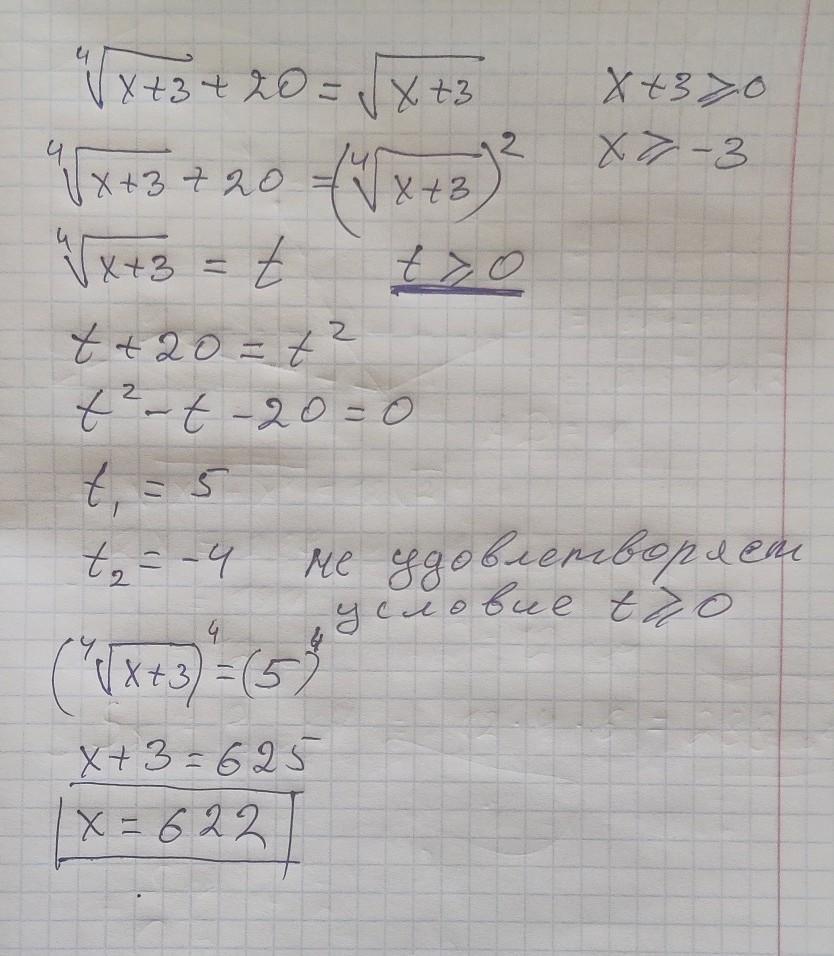 ⁴√(x+3) + 20 = √(x+3)    x+3 ⩾ 0
⁴√(x+3) + 20 = (⁴√(x+3))²    x ⩾ -3
⁴√(x+3) = t    t ⩾ 0
t + 20 = t²
t² - t - 20 = 0
t₁ = 5
t₂ = -4  не удовлетворяет
условие t ⩾ 0
(⁴√(x+3))⁴ = (5)⁴
x + 3 = 625
x = 622